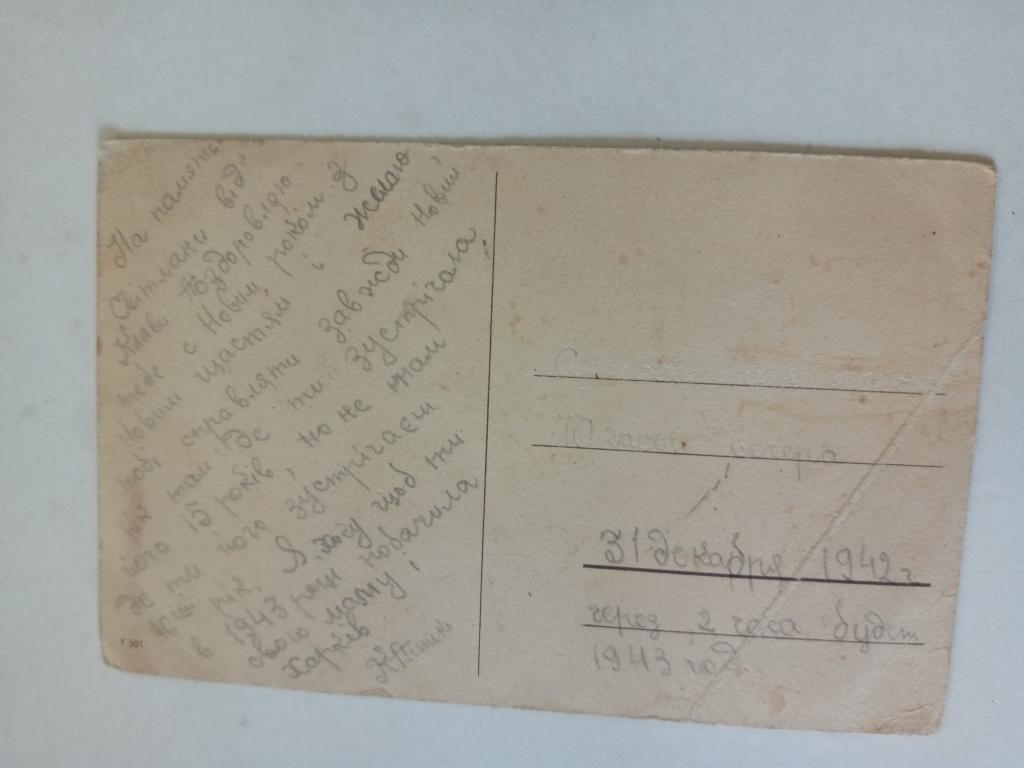 На память
Світлани від
Клави. Поздоровляю
тебе с Новим роком З
Новим щастям і желаю
тобі справляти завжди Новий
рік там де ти зустрічала
його 15 років, но не там
де ти його зустрічаєш
в рік. Я хочу щоб ти
1943 році побачила
свою маму і
Харків
10 часов вечера
31 декабря 1942 г
через 2 часа будет
1943 год.
T 501